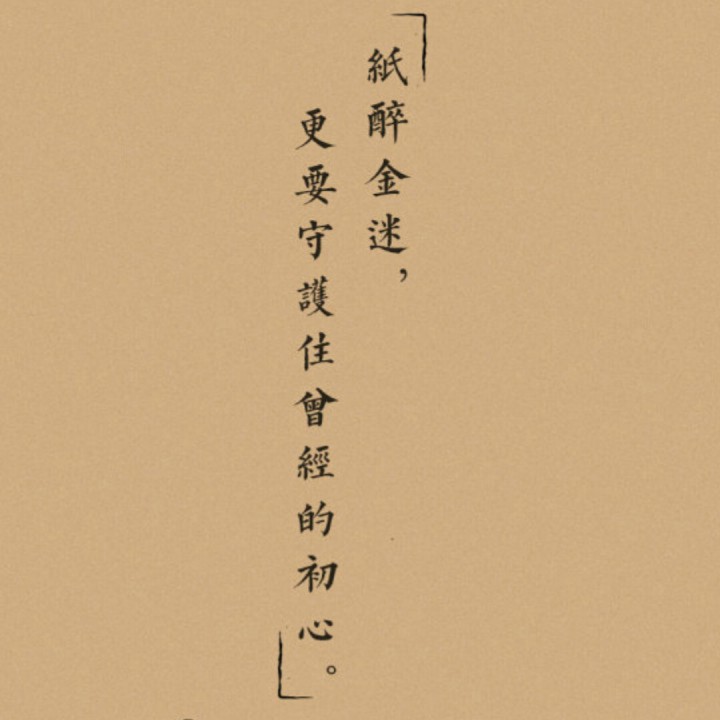 「紙醉金迷，
更要守護住曾經的初心。」